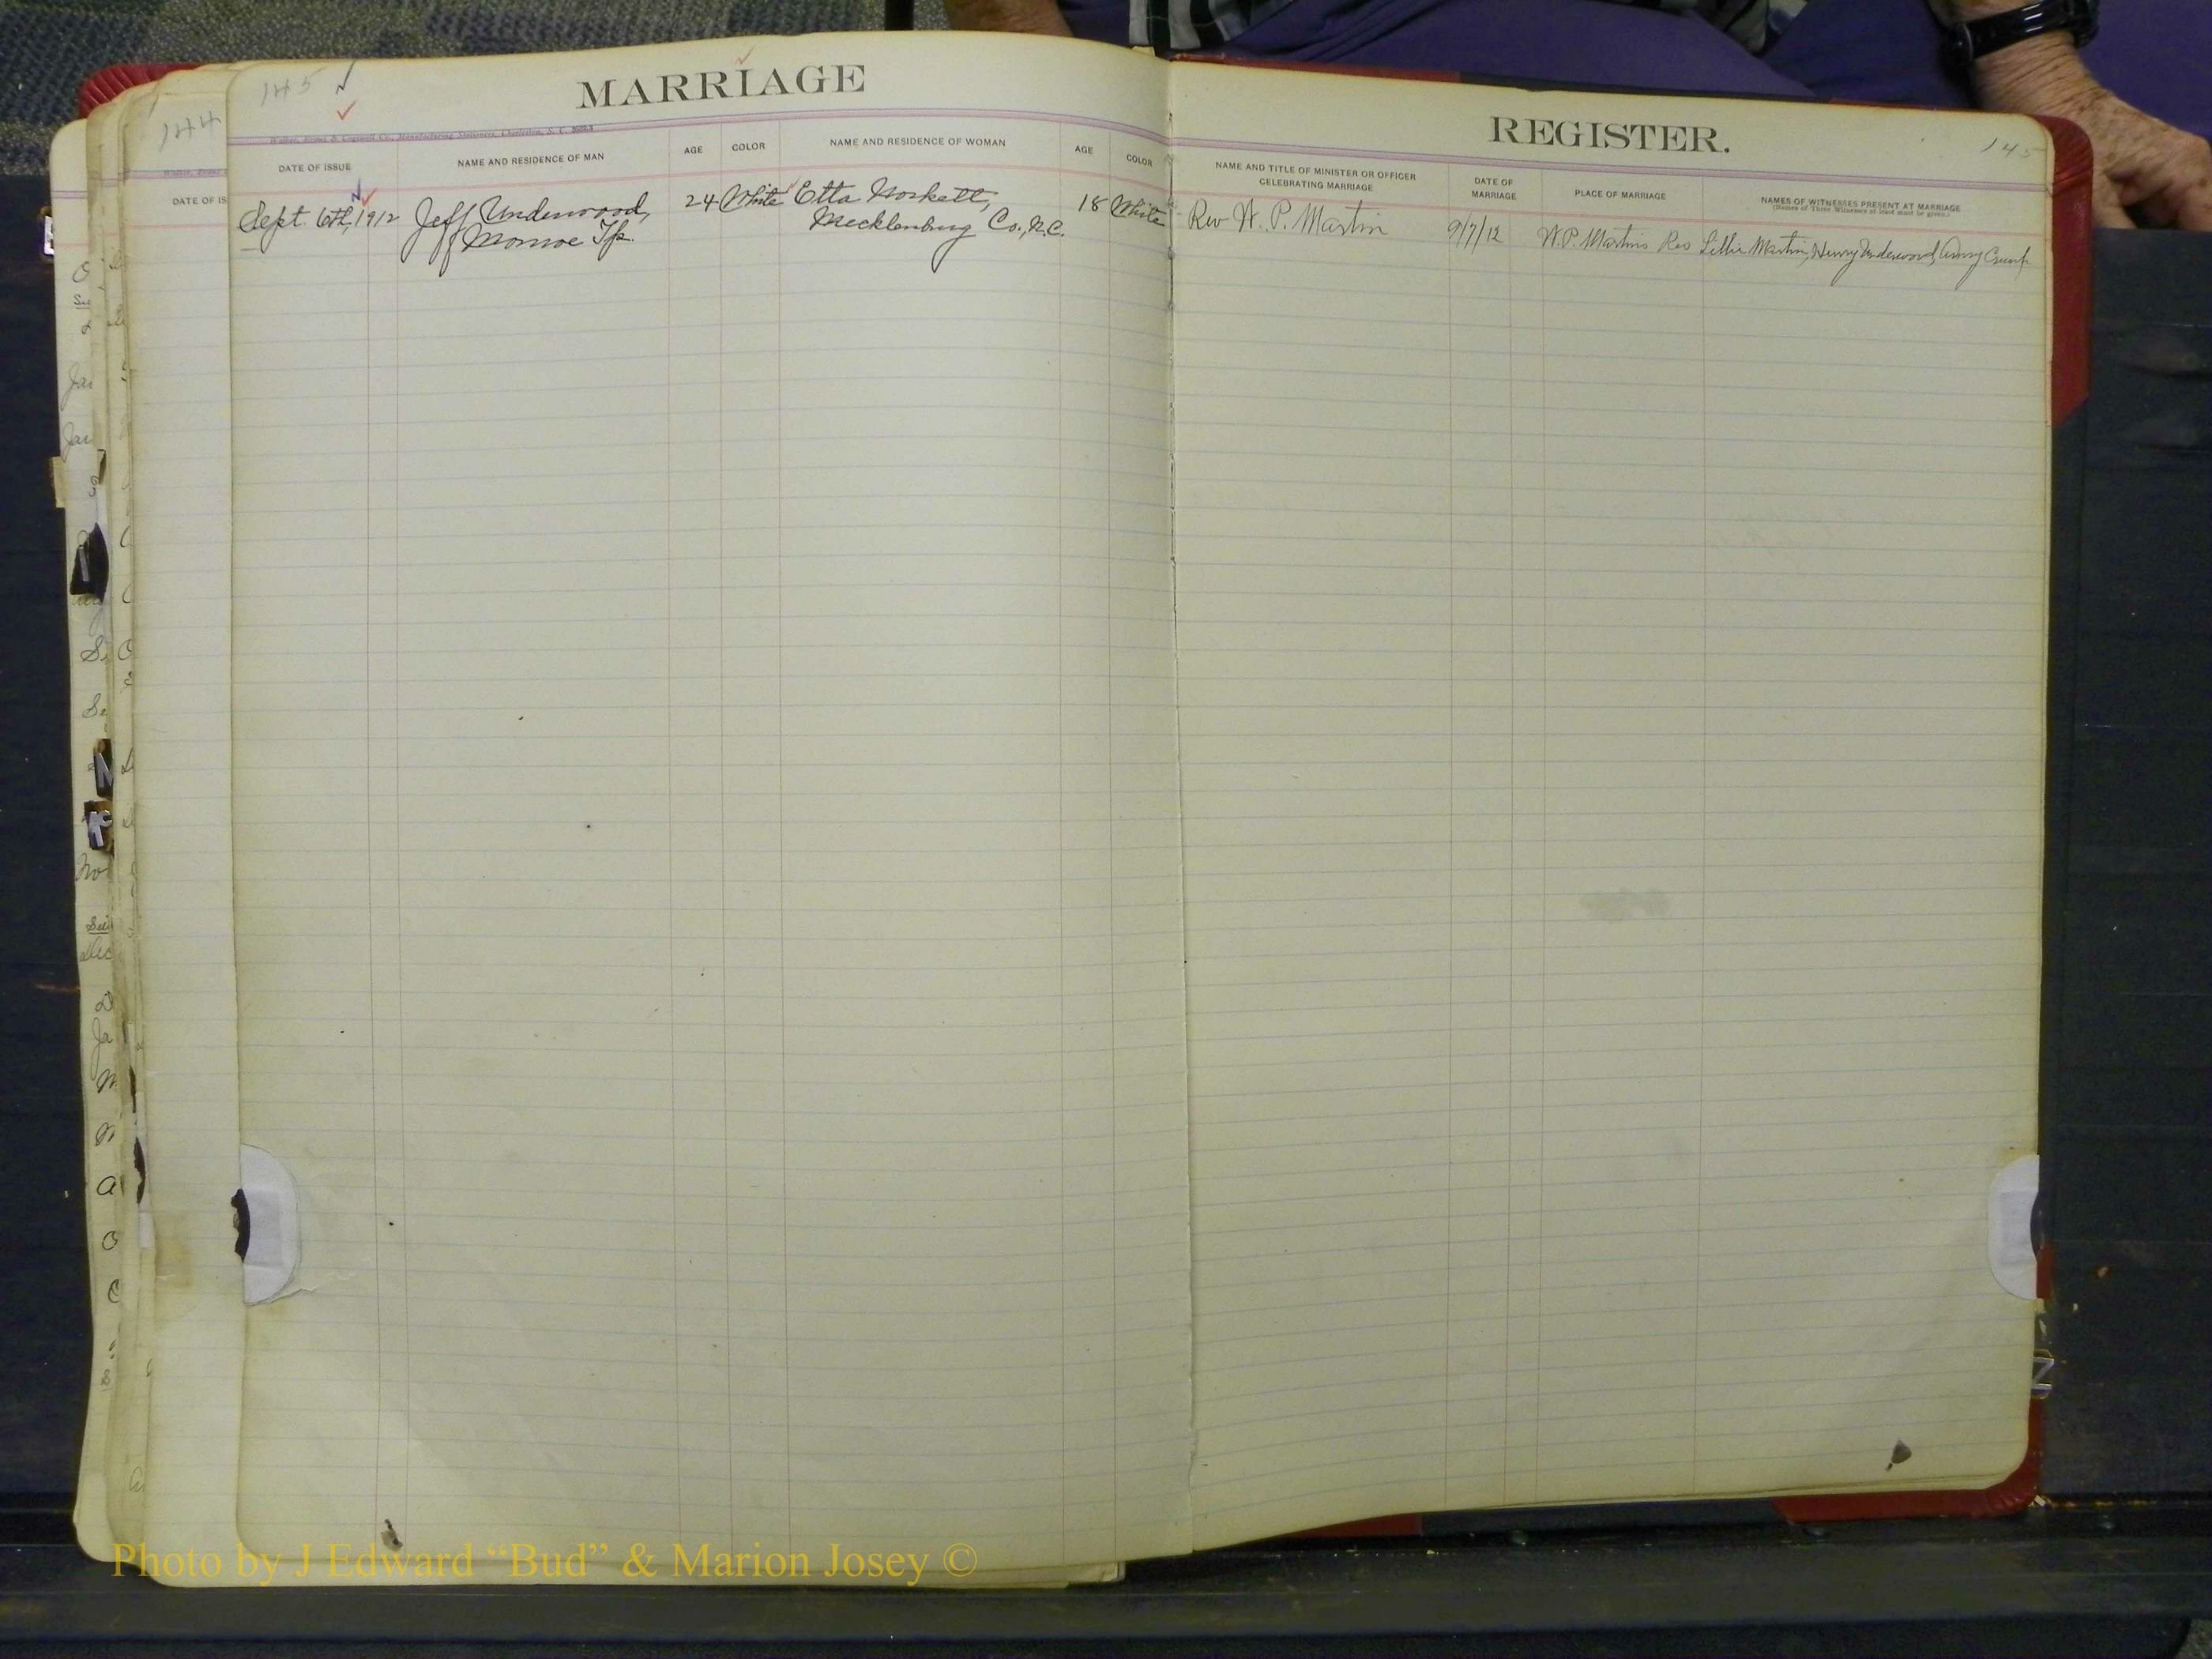 145
MARRIAGE
Walker, Evans & Cogswell Co., Manufacturing Stationers, Charleston, S. C.
DATE OF ISSUE
NAME AND RESIDENCE OF MAN
AGE
COLOR
NAME AND RESIDENCE OF WOMAN
AGE
COLOR
Sept. 6th, 1912 Jeff Underwood, 24 White Etta 18 White
Monroe Tp. Mecklenburg Co., N.C.
144
DATE OF IS
REGISTER.
145
NAME AND TITLE OF MINISTER OR OFFICER
CELEBRATING MARRIAGE
DATE OF
MARRIAGE
PLACE OF MARRIAGE
NAMES OF WITNESSES PRESENT AT MARRIAGE
(Names of Three Witnesses at least must be given.)
Rev W. P. Martin 9/7/12 W.P. Martins Res Lillie Martin, Henry Underwood,
Photo by J Edward “Bud” & Marion Josey ©